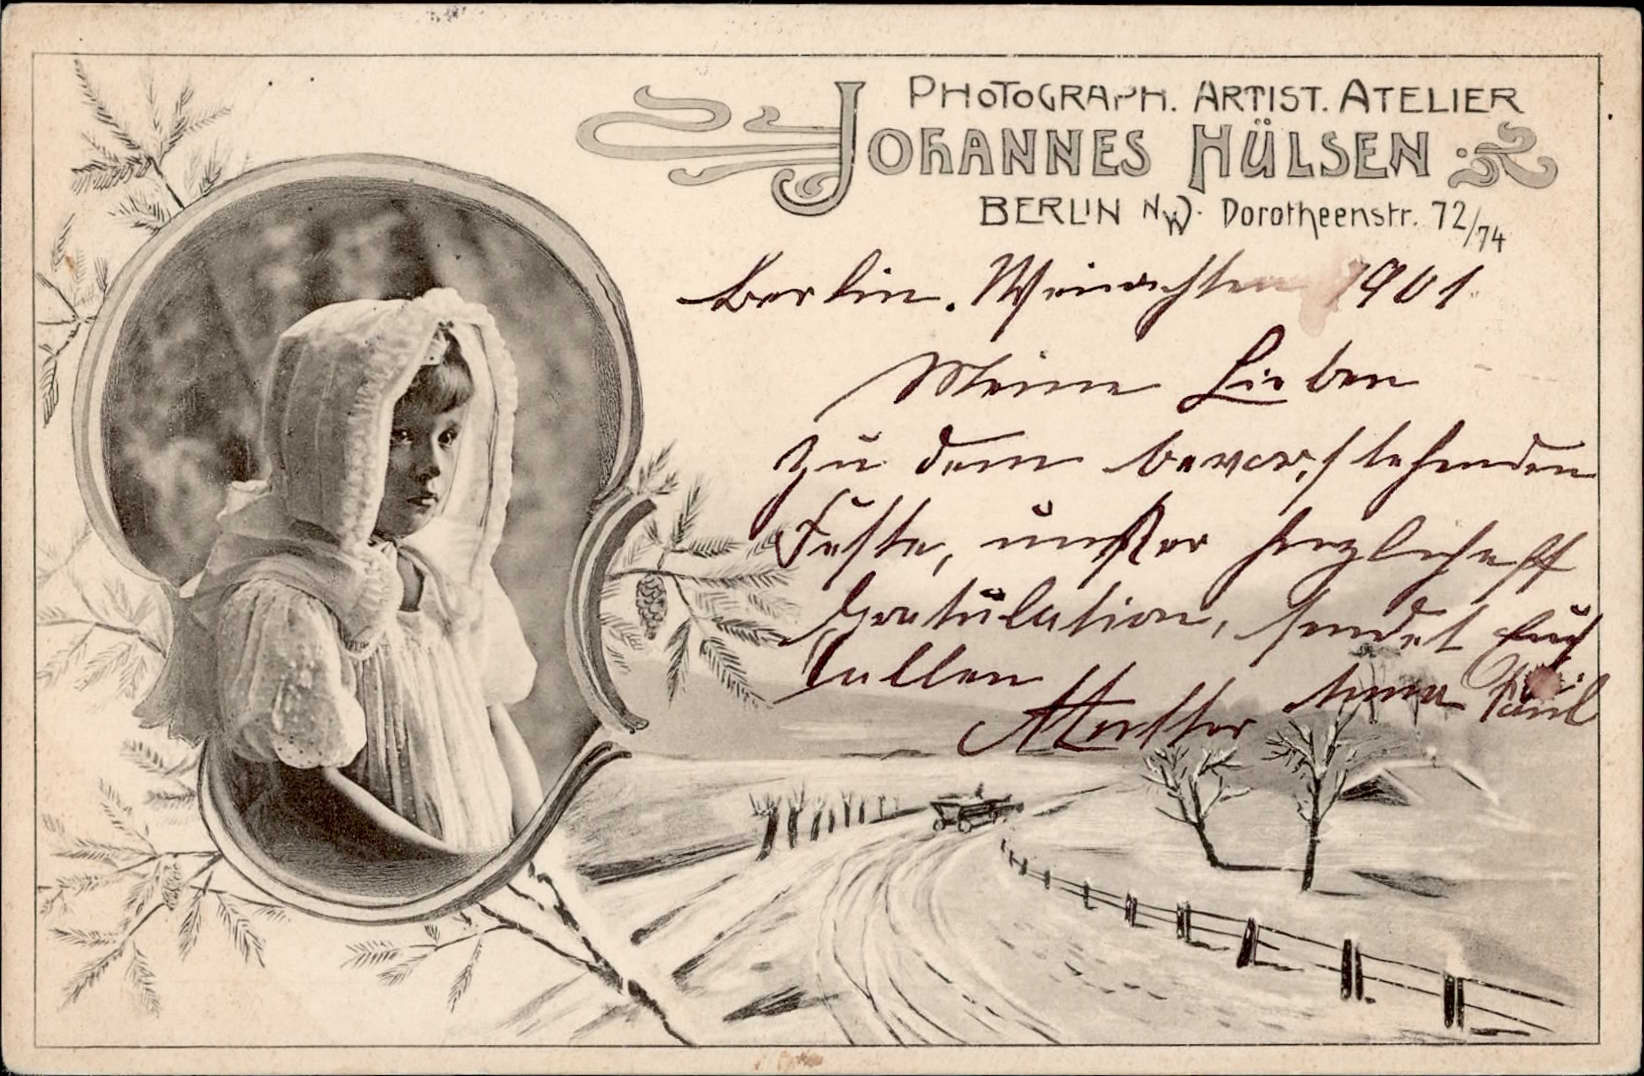 PHOTOGRAPH. ARTIST. ATELIER
JOHANNES HÜLSEN
BERLIN NW. Dorotheenstr. 72/74
Berlin. Weinachten 1901.
Meine Lieben
zu dem bevorstehenden
Feste, unßer herzlichst
Gratulation, sendet Euch
allen
Mutter Anna Paul